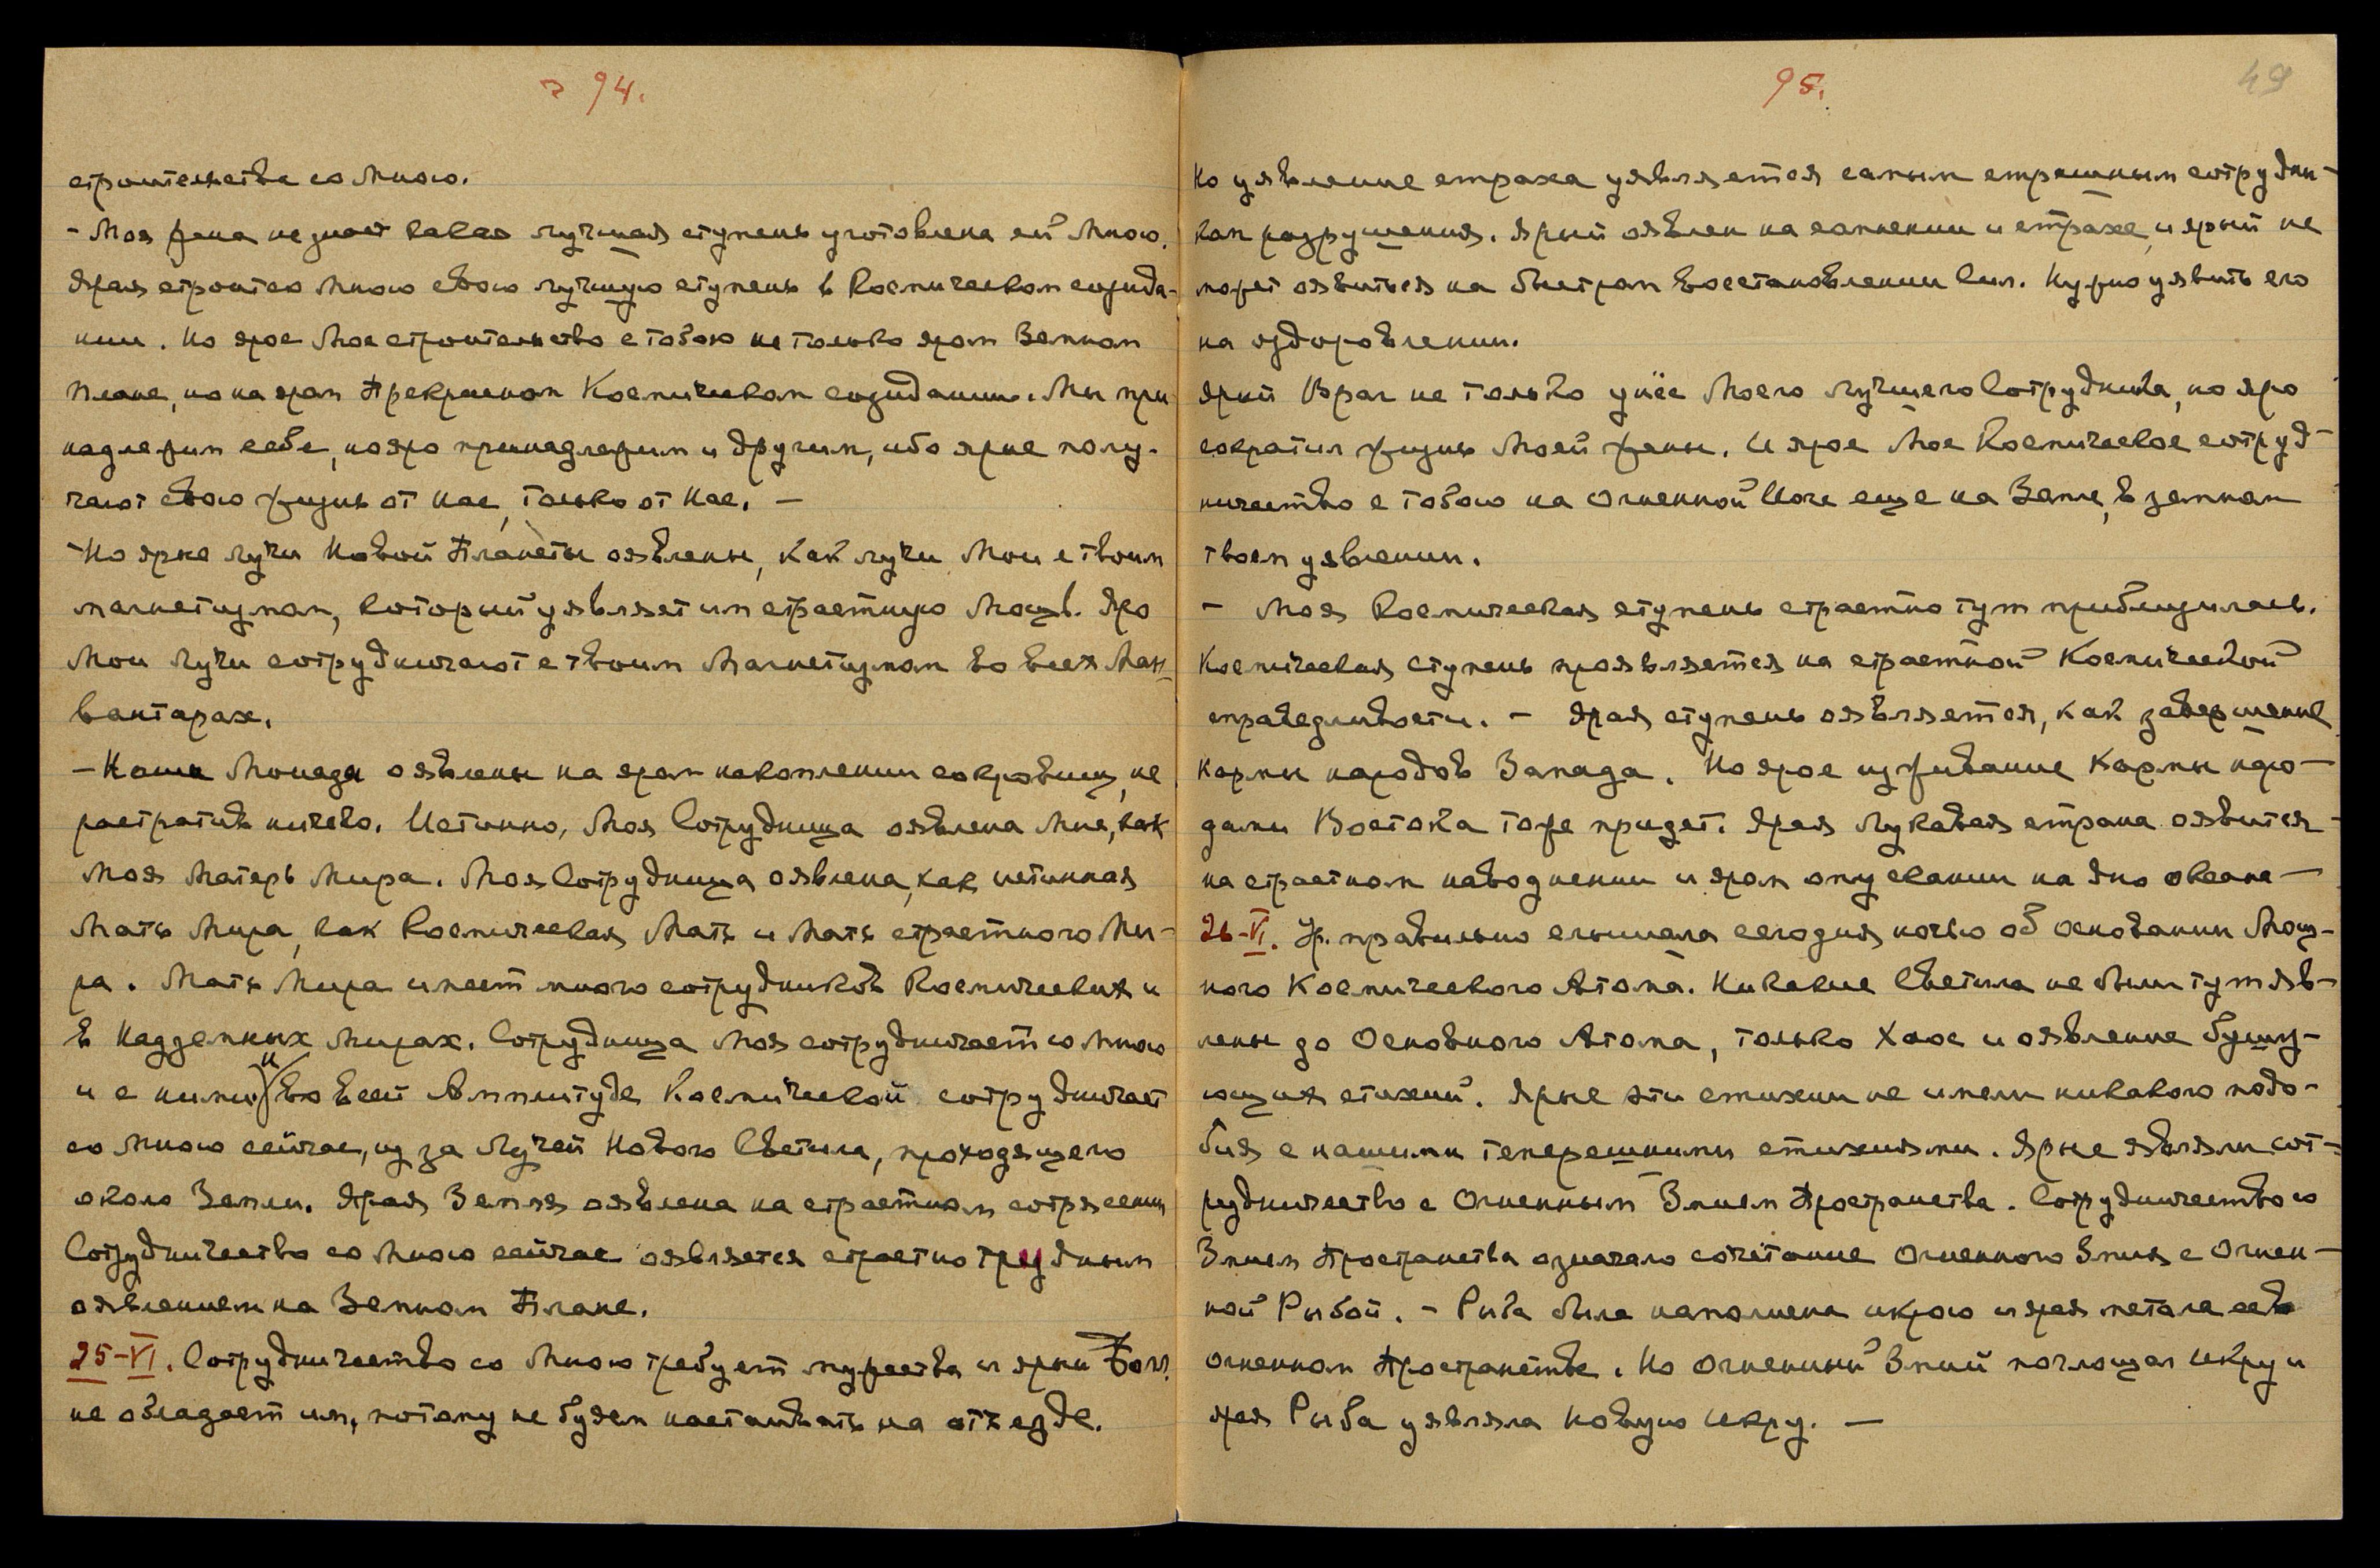 94.
строительства со Мною.
- Моя жена не знает какая лучшая ступень уготовлена ей Мною.
Ярая строится Мною свою лучшую ступень в Космическом созида-
нии. Но ярое Мое строительство с тобою не только яром Земном
плане, но на яром Прекрасном Космическом созидании. Мы при-
надлежим себе, но яро принадлежим и другим, ибо ярые полу-
чают свою жизнь от Нас, только от Нас. —
- Но ярые лучи Новой Планеты оявлены, как лучи Мои с твоим
магнетизмом, который уявляет им страстную Мощь. Яро
Мои Лучи сотрудничают с твоим Магнетизмом во всех Ман-
вантарах.
- Наши Монады оявлены на яром накоплении сокровищ, не
растратив ничего. Истинно, Моя Сотрудница оявлена Мне, как
Моя Матерь Мира. Моя Сотрудница оявлена, как истинная
Мать Мира, как Космическая Мать и Мать страстного Ми-
ра. Мать Мира имеет много сотрудников Космических и
в Надземных Мирах. Сотрудница Моя сотрудничает со Мною
и с ними и во всей Амплитуде Космической сотрудничает
со Мною сейчас, из за Лучей Нового Светила, проходящего
около Земли. Ярая Земля оявлена на страстном сотрясении
Сотрудничество со Мною сейчас оявляется страстно трудным
оявлением на Земном Плане.
25-VI. Сотрудничество со Мною требует мужества и ярый
не обладает им, потому не будем настаивать на отъезде.
95.
49
Но уявление страха уявляется самым страшным сотрудни-
ком разрушения. Ярый оявлен на сомнении и страхе, и ярый не
может оявиться на быстром восстановлении сил. Нужно уявить его
на оздоровлении.
Ярый Враг не только унёс Моего лучшего Сотрудника, но яро
сократил жизнь Моей жены. И ярое Мое Космическое сотруд-
ничество с тобою на Огненной Йоге еще на Земле, в земном
твоем уявлении.
- Моя Космическая ступень страстно тут приблизилась.
Космическая ступень проявляется на страстной Космической
справедливости. - Ярая ступень оявляется, как завершение
кармы народов Запада. Но ярое изживание Кармы наро-
дами Востока тоже придет. Ярая Лукавая страна оявится
на страстном наводнении и яром опускании на дно океана —
26-VI. Ур. правильно слышала сегодня ночью об основании Мощ-
ного Космического Атома. Никакие Светила не были тут яв-
лены до Основного Атома, только Хаос и оявление бушу-
ющих стихий. Ярые эти стихии не имели никакого подо-
бия с нашими теперешними стихиями. Ярые являли сот-
рудничество с Огненным Змием Пространства. Сотрудничество со
Змием Пространства означало сочетание Огненного Змия с Огнен-
ной Рыбой. - Рыба была наполнена икрою и ярая метала
огненном Пространстве. Но Огненный Змий поглощал Икру и
ярая Рыба уявляла новую Икру. —